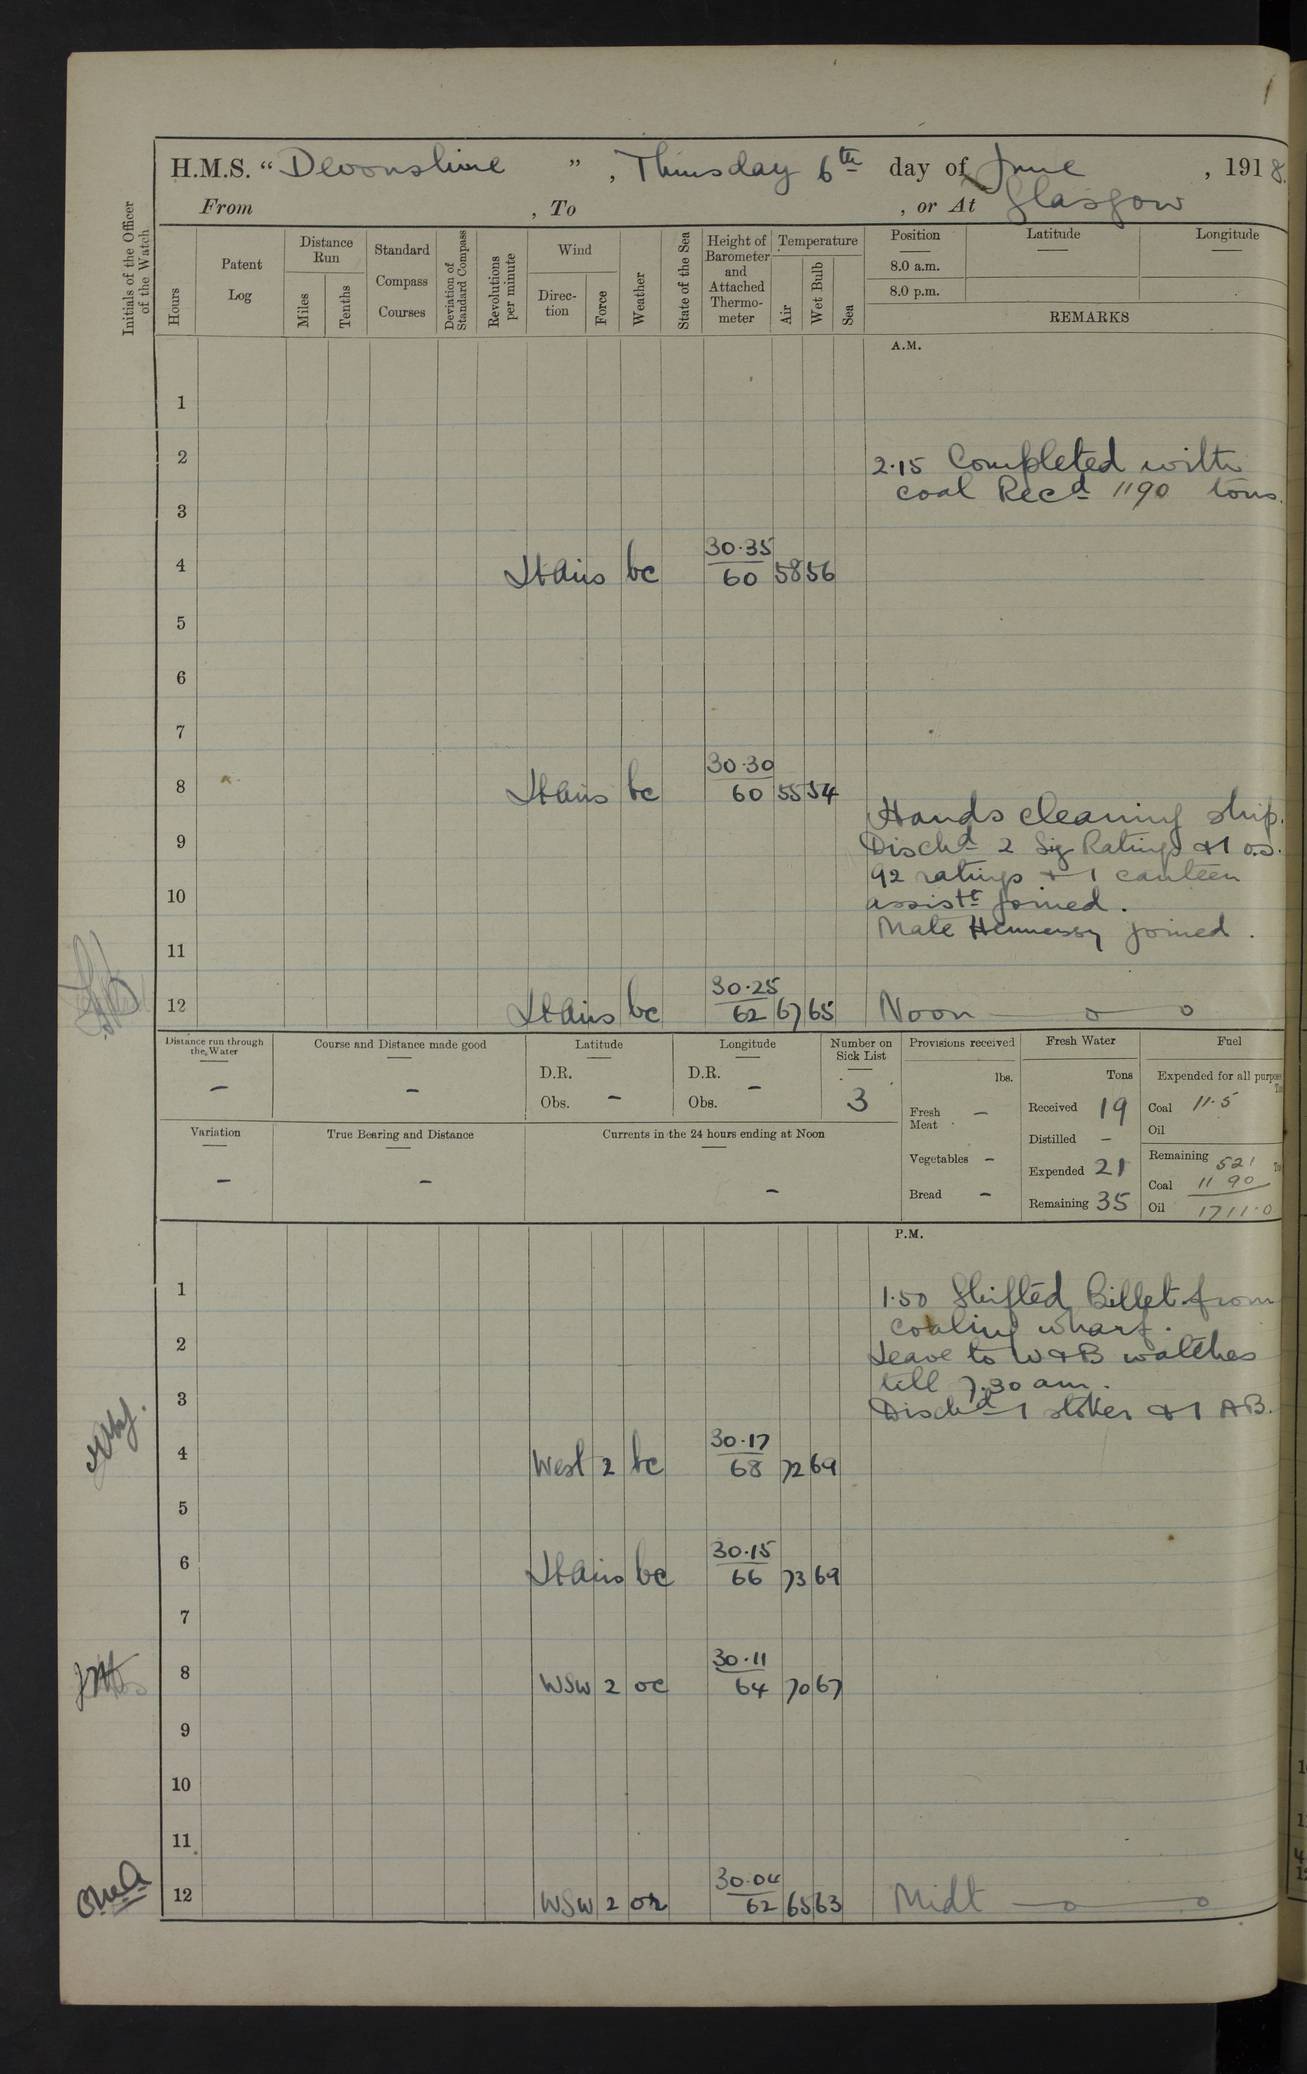 H.M.S. “Devonshire”, Thursday 6th day of June, 1918.
From , To , or At Glasgow
Initials of the Officer of the Watch.
Hours
Patent Log
Distance Run
Miles
Tenths
Standard Compass Courses
Deviation of Standard Compass
Revolutions per minute
Wind
Direction
Force
Weather
State of the Sea
Height of Barometer and Attached Thermometer
Temperature
Air
Wet Bulb
Sea
Position
Latitude
Longitude
8.0 a.m.
8.0 p.m.
REMARKS
A.M.
1
2 2.15 Completed with
coal Recd 1190 tons.
3
30.35
4 Lt airs bc 60 58 56
5
6
7
30.30
8 Lt airs bc 60 55 54
Hands cleaning ship.
9 Dischd 2 Sig Ratings & 1 o.s.
92 ratings & 1 canteen
10 assistt joined.
Mate Hennessy joined.
11
30.25
12 Lt airs bc 62 67 65 Noon
Distance run through the Water
–
Course and Distance made good
–
Latitude
D.R.
Obs. –
Longitude
D.R. –
Obs.
Number on Sick List
3
Provisions received
lbs.
Fresh Meat –
Vegetables –
Bread –
Fresh Water
Tons
Received 19
Distilled –
Expended 21
Remaining 35
Fuel
Expended for all purpose
Coal 11.5
Oil
Remaining 521
Coal 1190
Oil 1711.0
Variation
–
True Bearing and Distance
–
Currents in the 24 hours ending at Noon
–
P.M.
1 1.50 Shifted Billet from
coaling wharf.
2 Leave to W & B watches
till 7.30 am.
3 Dischd 1 stoker & 1 AB.
30.17
4 West 2 bc 68 72 69
5
30.15
6 Lt airs bc 66 73 69
7
30.11
8 WSW 2 oc 64 70 67
9
10
11
30.04
12 WSW 2 or 62 65 63 Midt